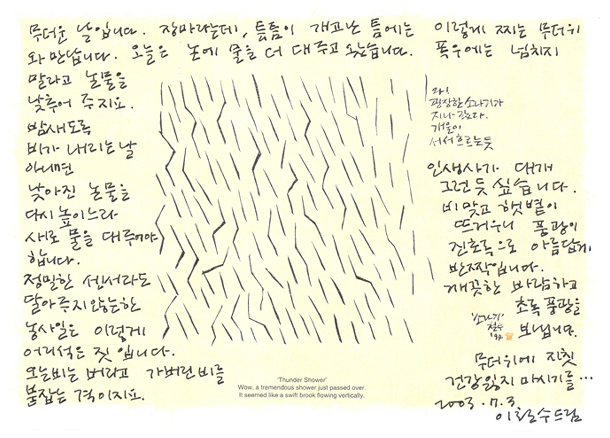 무더운 날입니다. 장마라는데, 틈틈이 개고난 틈에는 이렇게 찌는 무더위
와 만납니다. 오늘은 논에 물을 더 대주고 왔습니다. 폭우에는 넘치지
말라고 논물을
낮추어 주지요.
밤새도록
비가 내리는 날
아니면
낮아진 논물을
다시 높이느라
새로 물을 대주어야
합니다.
정밀한 센서라도
달아주지 않는한
농사일은 이렇게
어리석은 짓 입니다.
오는비는 버리고 가버린비를
붙잡는 격이지요.
와!
굉장한 소나기가
지나갔다.
개울이
서서 흐르는듯
'소나기'
철수
'Thunder Shower'
Wow, a tremendous shower just passed over.
It seemed like a swift brook flowing vertically.
인생사가 대개
그런 듯 싶습니다.
비 맞고 햇볕이
뜨거우니 풍광이
진초록으로 아름답게
반짝입니다.
깨끗한 바람하고
초록 풍광을
보냅니다.
무더위에 지칫
건강 잃지 마시기를…
2003.7.3
이철수드림